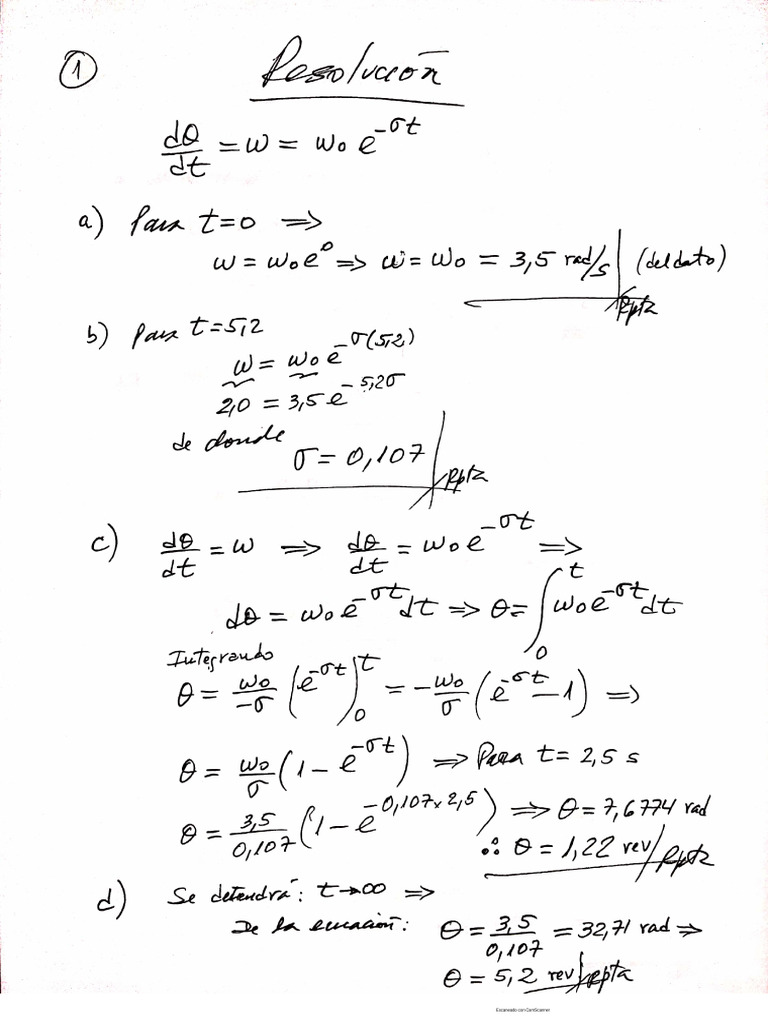 1
Resolución
dθ/dt = ω = ω₀ e^{-σt}
a) Para t=0 ⇒
ω = ω₀e⁰ ⇒ ω = ω₀ = 3,5 rad/s (del dato)
Rpta
b) Para t=5,2
ω = ω₀ e^{-σ(5,2)}
2,0 = 3,5 e^{-5,2σ}
de donde
σ = 0,107
Rpta
c) dθ/dt = ω ⇒ dθ/dt = ω₀ e^{-σt} ⇒
dθ = ω₀ e^{-σt} dt ⇒ θ = ∫₀ᵗ ω₀ e^{-σt} dt
Integrando
θ = ω₀/-σ (e^{-σt})₀ᵗ = -ω₀/σ (e^{-σt} - 1) ⇒
θ = ω₀/σ (1 - e^{-σt}) ⇒ Para t = 2,5 s
θ = 3,5/0,107 (1 - e^{-0,107×2,5}) ⇒ θ = 7,6774 rad
∴ θ = 1,22 rev/Rpta
d) Se detendrá: t→∞ ⇒
De la ecuación: θ = 3,5/0,107 = 32,71 rad ⇒
θ = 5,2 rev/Rpta
Escaneado con CamScanner